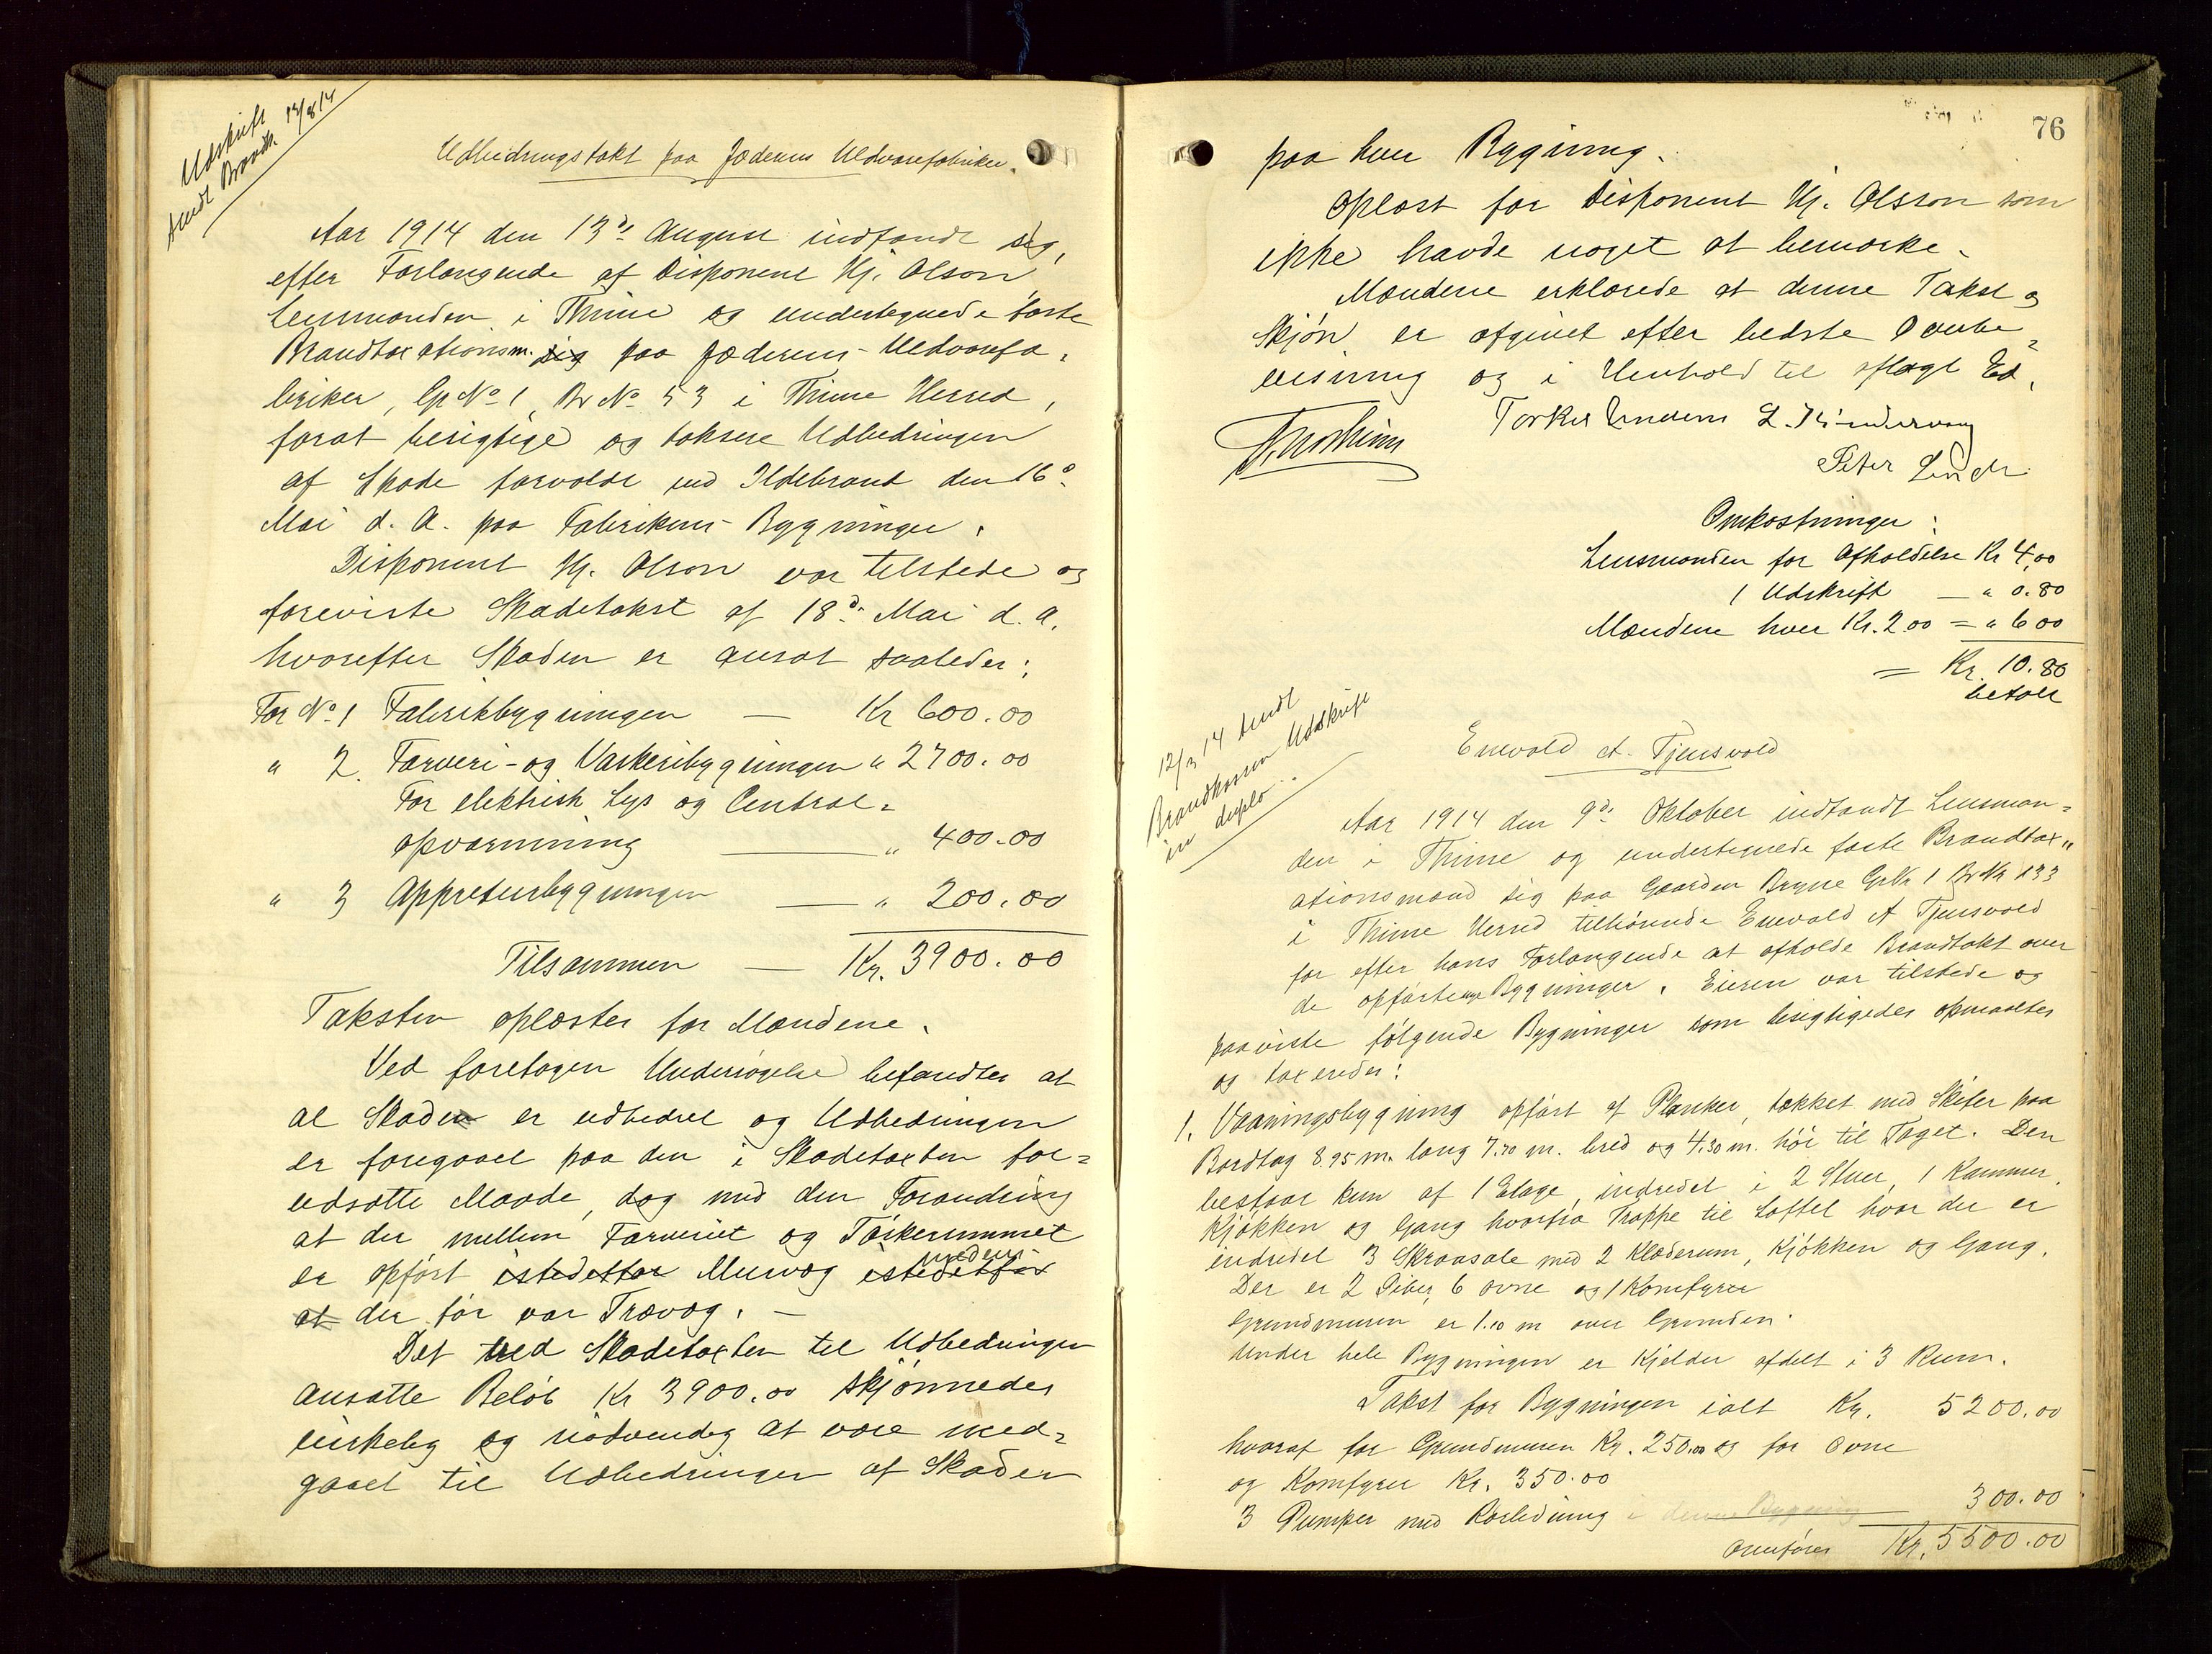 Udskrift
sendt Brandk. 13/8 14
Udbedringstakst paa Jæderens Uldvarefabriker.
Aar 1914 den 13d: August indfandt sig,
efter Forlangende af Disponent Hj. Olson,
Lensmanden i Thime og undertegnede faste
Brandtaxationsm. sig paa Jæderens Uldvarefa-
briker, Gr No 1, Br No 53 i Thime Herred,
forat besigtige og taksere Udbedringen
af Skade forvoldt ved Ildebrand den 16d:
Mai d. A. paa Fabrikens Bygninger.
Disponent Hj. Olson var tilstede og
foreviste Skadetakst af 18d: Mai d. A.
hvorefter Skaden er ansat saaledes:
For No 1 Fabrikbygningen — Kr 600.00
" 2. Farveri- og Vaskeribygningen " 2700.00
For elektrisk Lys og Central-
opvarmning — " 400.00
" 3 Appreturbygningen — " 200.00
Tilsammen — Kr. 3900.00
Taksten oplæstes for Mændene.
Ved foretagen Undersøgelse befandtes at
al Skaden er udbedret og Udbedringen
er foregaaet paa den i Skadetaxten for-
udsatte Maade, dog med den Forandring
at der mellem Farveriet og Tørkerummet
er opført istedetfor Murvæg istedetfor
medens
at der før var Trævæg. —
Det ved Skadetaxten til Udbedringen
ansatte Beløb Kr 3900.00 skjønnedes
virkelig og nødvendig at være med-
gaaet til Udbedringen af Skaden
76
paa hver Bygning.
Oplæst for Disponent Hj. Olsson som
ikke havde noget at bemærke.
Mændene erklærede at denne Takst og
Skjøn er afgivet efter bedste Overbe-
visning og i Henhold til aflagt Ed.
Torkel
Peter
Omkostninger:
Lensmanden for Afholdelse Kr 4,00
1 Udskrift — " 0.80
Mændene hver Kr. 2.00 = " 6 00
= Kr. 10.80
betalt
12/3 14 sendt
Brandkassen Udskrift
in duplo
Enevald A. Tjensvold
Aar 1914 den 9d: Oktober indfandt Lensman-
den i Thime og undertegnede faste Brandtax-
ationsmænd sig paa Gaarden Bryne GrNr 1 BrNr 133
i Thime Herred tilhørende Enevald A Tjensvold
for efter hans Forlangende at afholde Brandtakst over
de opførte nye Bygninger. Eieren var tilstede og
paaviste følgende Bygninger som besigtigedes opmaaltes
og taxeredes:
1. Vaaningsbygning opført af Planker, tækket med Skifer paa
Bordtag 8.95 m. lang 7.70 m. bred og 4.30 m. høi til Taget. Den
bestaar kun af 1 Etage, indredet i 2 Stuer, 1 Kammer,
Kjøkken og Gang hvorfra Trappe til Loftet hvor der er
indredet 3 Skraasale med 2 Klæderum, Kjøkken og Gang.
Der er 2 Piber, 6 ovne og 1 Komfyrer
Grundmuren er 1.10 m over Grunden.
Under hele Bygningen er Kjelder afdelt i 3 Rum.
Takst for Bygningen ialt Kr. 5200.00
hvoraf for Grundmuren Kr. 250.00 og for Ovne
og Komfyrer Kr. 350.00
3 Pumper med Rørledning i denne Bygning 300.00
Overføres Kr. 5500.00